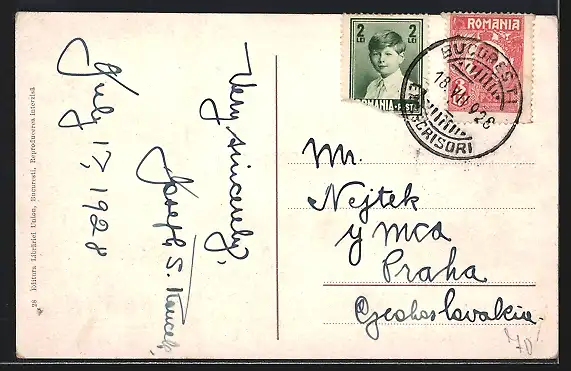 July 17, 1928
Very sincerely,
Joseph S.
28 Editura Librăriei Universala, Bucuresti, Reproducerea interzisă
2 2
LEI LEI
ROMANIA
ROMANIA
BUCURESTI
18 928
SCRISORI
Mr.
Nejtek
y mca
Praha
Czechoslovakia.
70